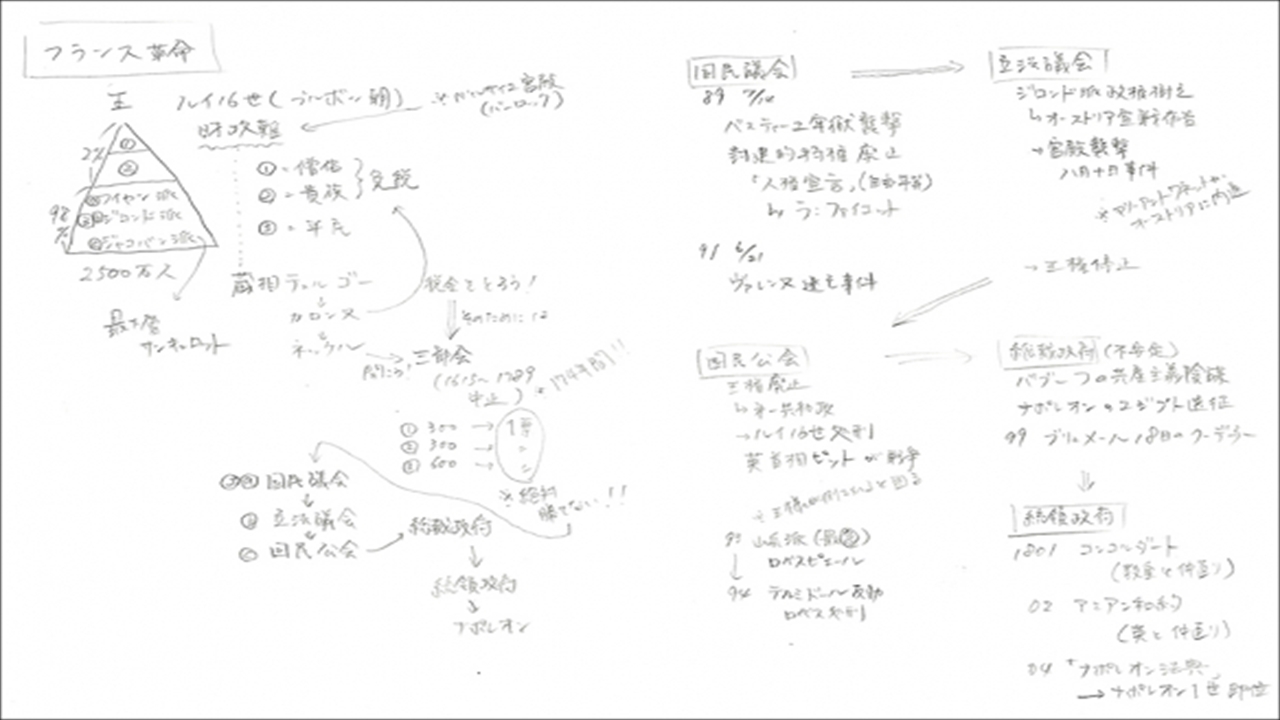 フランス革命
王 ルイ16世(ブルボン朝) ※ヴェルサイユ宮殿
(バロック)
財政難
2%
①
②
98%
③
Ⓐフイヤン派
Ⓑジロンド派
Ⓒジャコバン派
2500万人
最下層
サンキュロット
①=僧侶
②=貴族
免税
③=平民
蔵相テュルゴー
↓
カロンヌ
↓
ネッケル
税金をとろう!
そのためには
→三部会
(1615~1789
中止)
※174年間!!
① 300 → 1票
② 300 → 〃
③ 600 → 〃
※絶対
勝てない!!
国民議会
↓
Ⓑ 立法議会
↓
Ⓒ 国民公会 → 総裁政府
↓
統領政府
↓
ナポレオン
国民議会
89 7/14
バスティーユ牢獄襲撃
封建的特権廃止
「人権宣言」(自由平等)
↳ ラ=ファイエット
91 6/21
ヴァレンヌ逃亡事件
立法議会
ジロンド派政権樹立
↳オーストリア宣戦布告
→宮殿襲撃
八月十日事件
※マリーアントワネットが
オーストリアに内通
→王権停止
国民公会
王権廃止
↳第一共和政
→ルイ16世処刑
英首相ピットが戦争
93 山岳派
ロベスピエール
↓
94 テルミドール反動
ロベス処刑
総裁政府(不安定)
バブーフの共産主義陰謀
ナポレオンのエジプト遠征
99 ブリュメール18日のクーデター
統領政府
1801 コンコルダート
(教皇と仲直り)
02 アミアン和約
(英と仲直り)
04 「ナポレオン法典」
→ナポレオン1世即位